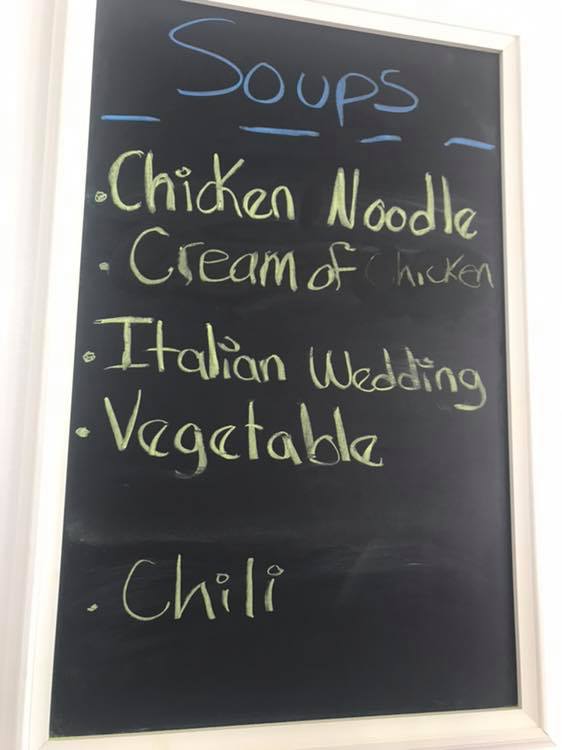 Soups
• Chicken Noodle
• Cream of Chicken
• Italian Wedding
• Vegetable
• Chili